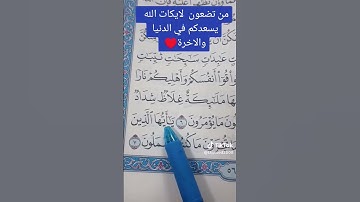 من تضعون لايكات الله
يسعدكم في الدنيا
والاخرة❤️
عَٰبِدَٰتٖ سَٰٓئِحَٰتٖ ثَيِّبَٰتٖ
قُوٓاْ أَنفُسَكُمۡ وَأَهۡلِيكُمۡ نَارٗا
مَلَٰٓئِكَةٌ غِلَاظٞ شِدَادٞ
مَا يُؤۡمَرُونَ ٦ يَٰٓأَيُّهَا ٱلَّذِينَ
مَا كُنتُمۡ تَعۡمَلُونَ ٧
TikTok